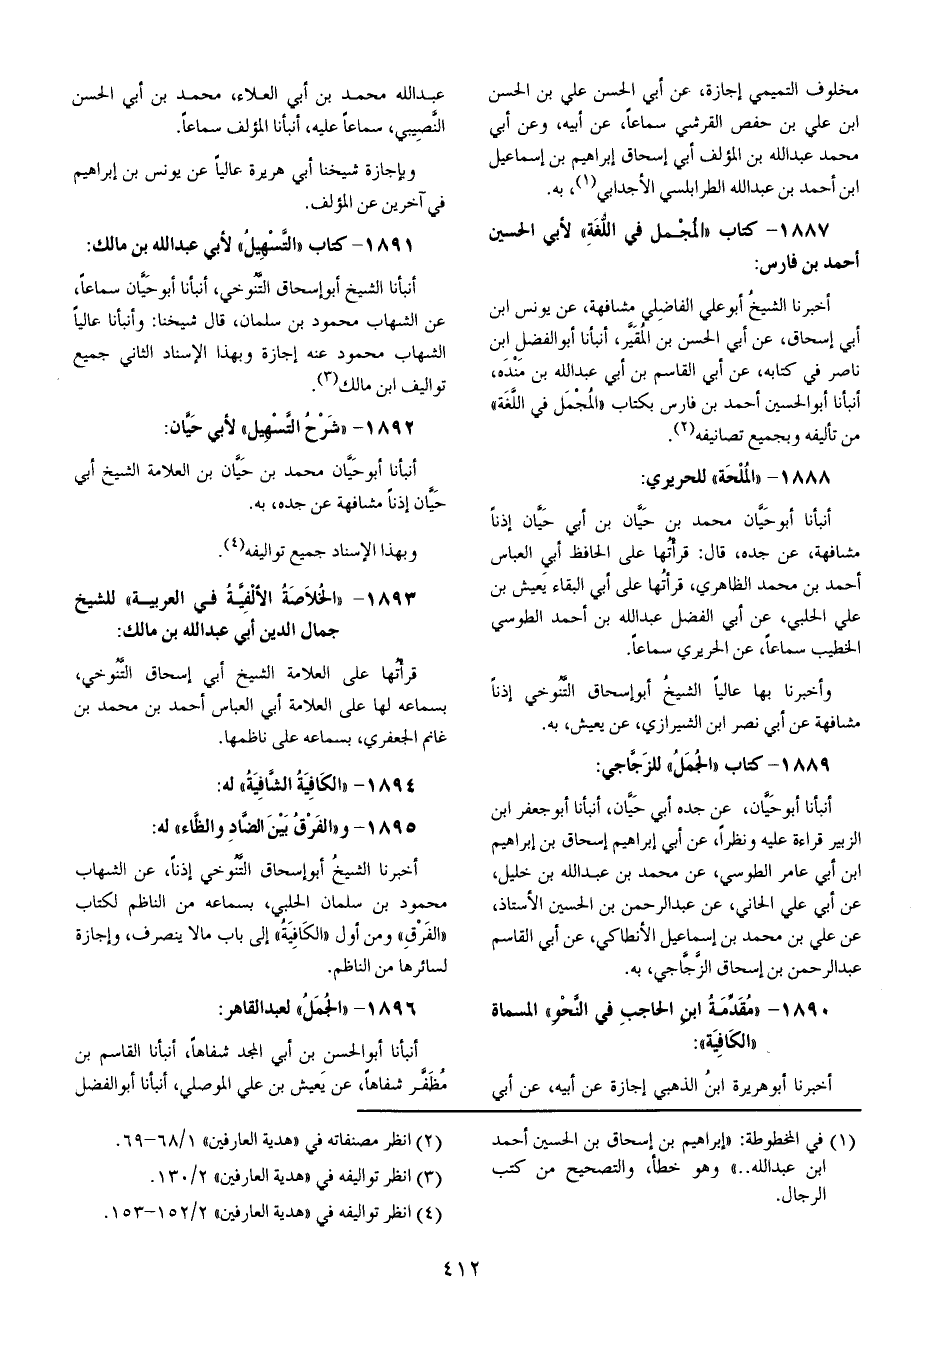 مخلوف التميمي إجازة، عن أبي الحسن علي بن الحسن
ابن علي بن حفص القرشي سماعاً، عن أبيه، وعن أبي
محمد عبدالله بن المؤلف أبي إسحاق إبراهيم بن إسماعيل
ابن أحمد بن عبدالله الطرابلسي الأجدابي(١)، به.
١٨٨٧- كتاب «المُجْمل في اللُّغَةِ» لأبي الحسين
أحمد بن فارس:
أخبرنا الشيخُ أبوعلي الفاضلي مشافهة، عن يونس ابن
أبي إسحاق، عن أبي الحسن بن المُقَيَّر، أنبأنا أبوالفضل ابن
ناصر في كتابه، عن أبي القاسم بن أبي عبدالله بن مَنْدَه،
أنبأنا أبوالحسين أحمد بن فارس بكتاب «المُجْمَل في اللَّغة»
من تأليفه وبجميع تصانيفه(٢).
١٨٨٨- «المُلْحَة» للحريري:
أنبأنا أبوحَيَّان محمد بن حَيَّان بن أبي حَيَّان إذناً
مشافهة، عن جده، قال: قرأتُها على الحافظ أبي العباس
أحمد بن محمد الظاهري، قرأتُها على أبي البقاء يَعيش بن
علي الحلبي، عن أبي الفضل عبدالله بن أحمد الطوسي
الخطيب سماعاً، عن الحريري سماعاً.
وأخبرنا بها عالياً الشيخُ أبوإسحاق التَّنُوخي إذناً
مشافهة عن أبي نصر ابن الشيرازي، عن يعيش، به.
١٨٨٩- كتاب «الجُمَلُ» للزَجَّاجي:
أنبأنا أبوحَيَّان، عن جده أبي حَيَّان، أنبأنا أبوجعفر ابن
الزبير قراءة عليه ونظراً، عن أبي إبراهيم إسحاق بن إبراهيم
ابن أبي عامر الطوسي، عن محمد بن عبدالله بن خليل،
عن أبي علي الحاني، عن عبدالرحمن بن الحسين الأستاذ،
عن علي بن محمد بن إسماعيل الأنطاكي، عن أبي القاسم
عبدالرحمن بن إسحاق الزَّجَّاجي، به.
١٨٩٠- «مُقَدِّمَةُ ابنِ الحاجبِ في النَّحْوِ» المسماة
«الكَافِيَة»:
أخبرنا أبوهريرة ابنُ الذهبي إجازة عن أبيه، عن أبي
عبدالله محمد بن أبي العلاء، محمد بن أبي الحسن
النَّصِيبي، سماعاً عليه، أنبأنا المؤلف سماعاً.
وبإجازة شيخنا أبي هريرة عالياً عن يونس بن إبراهيم
في آخرين عن المؤلف.
١٨٩١- كتاب «التَّسْهِيلُ» لأبي عبدالله بن مالك:
أنبأنا الشيخ أبوإسحاق التَّنُوخي، أنبأنا أبوحَيَّان سماعاً،
عن الشهاب محمود بن سلمان، قال شيخنا: وأنبأنا عالياً
الشهاب محمود عنه إجازة وبهذا الإسناد الثاني جميع
تواليف ابن مالك(٣).
١٨٩٢- «شَرْحُ التَّسْهِيل» لأبي حَيَّان:
أنبأنا أبوحَيَّان محمد بن حَيَّان بن العلامة الشيخ أبي
حَيَّان إذناً مشافهة عن جده، به.
وبهذا الإسناد جميع تواليفه(٤).
١٨٩٣- «الخُلاَصَةُ الألْفِيَّةُ في العربية» للشيخ
جمال الدين أبي عبدالله بن مالك:
قرأتُها على العلامة الشيخ أبي إسحاق التَّنُوخي،
بسماعه لها على العلامة أبي العباس أحمد بن محمد بن
غانم الجعفري، بسماعه على ناظمها.
١٨٩٤- «الكَافِيَةُ الشَّافِيَةُ» له:
١٨٩٥- و«الفَرْقُ بَيْنَ الضَّاد والظَّاء» له:
أخبرنا الشيخُ أبوإسحاق التَّنُوخي إذناً، عن الشهاب
محمود بن سلمان الحلبي، بسماعه من الناظم لكتاب
«الفَرْقِ» ومن أول «الكَافِيَةُ» إلى باب مالا ينصرف، وإجازة
لسائرها من الناظم.
١٨٩٦- «الجُمَلُ» لعبدالقاهر:
أنبأنا أبوالحسن بن أبي المجد شفاهاً، أنبأنا القاسم بن
مُظَفَّر شفاهاً، عن يَعيش بن علي الموصلي، أنبأنا أبوالفضل
(١) في المخطوطة: «إبراهيم بن إسحاق بن الحسين أحمد
ابن عبدالله..» وهو خطأ، والتصحيح من كتب
الرجال.
(٢) انظر مصنفاته في «هدية العارفين» ٦٨/١-٦٩.
(٣) انظر تواليفه في «هدية العارفين» ١٣٠/٢.
(٤) انظر تواليفه في «هدية العارفين» ١٥٢/٢-١٥٣.
٤١٢